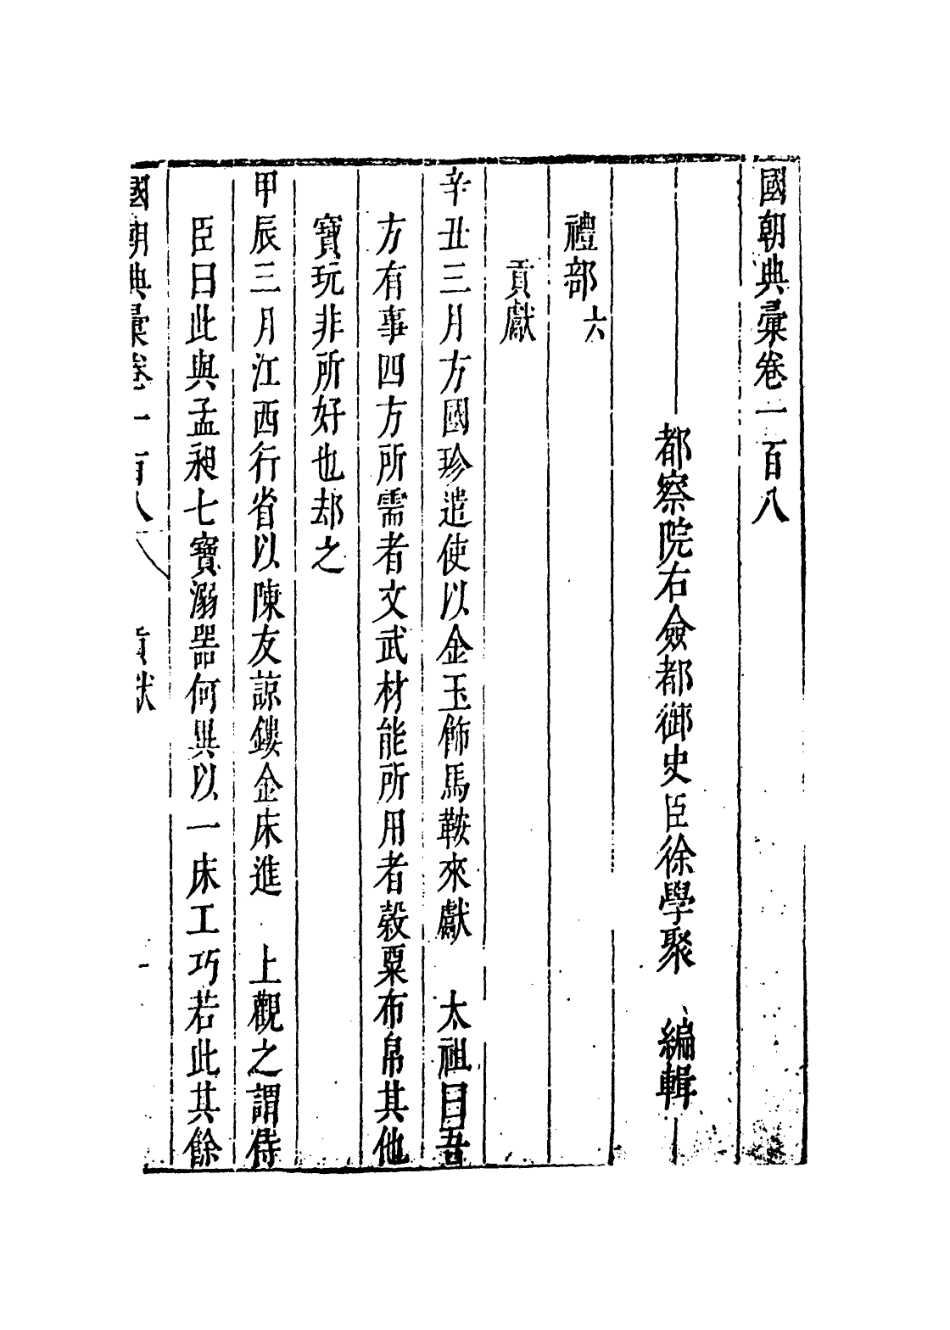 國朝典彙卷一百八
都察院右僉都御史臣徐學聚　編輯
禮部六
貢獻
辛丑三月方國珍遣使以金玉飾馬鞍來獻　太祖曰吾
方有事四方所需者文武材能所用者穀粟布帛其他
寶玩非所好也却之
甲辰三月江西行省以陳友諒鏤金床進　上觀之謂侍
臣曰此與孟昶七寶溺器何異以一床工巧若此其餘
國朝典彙卷一百八　貢獻　一